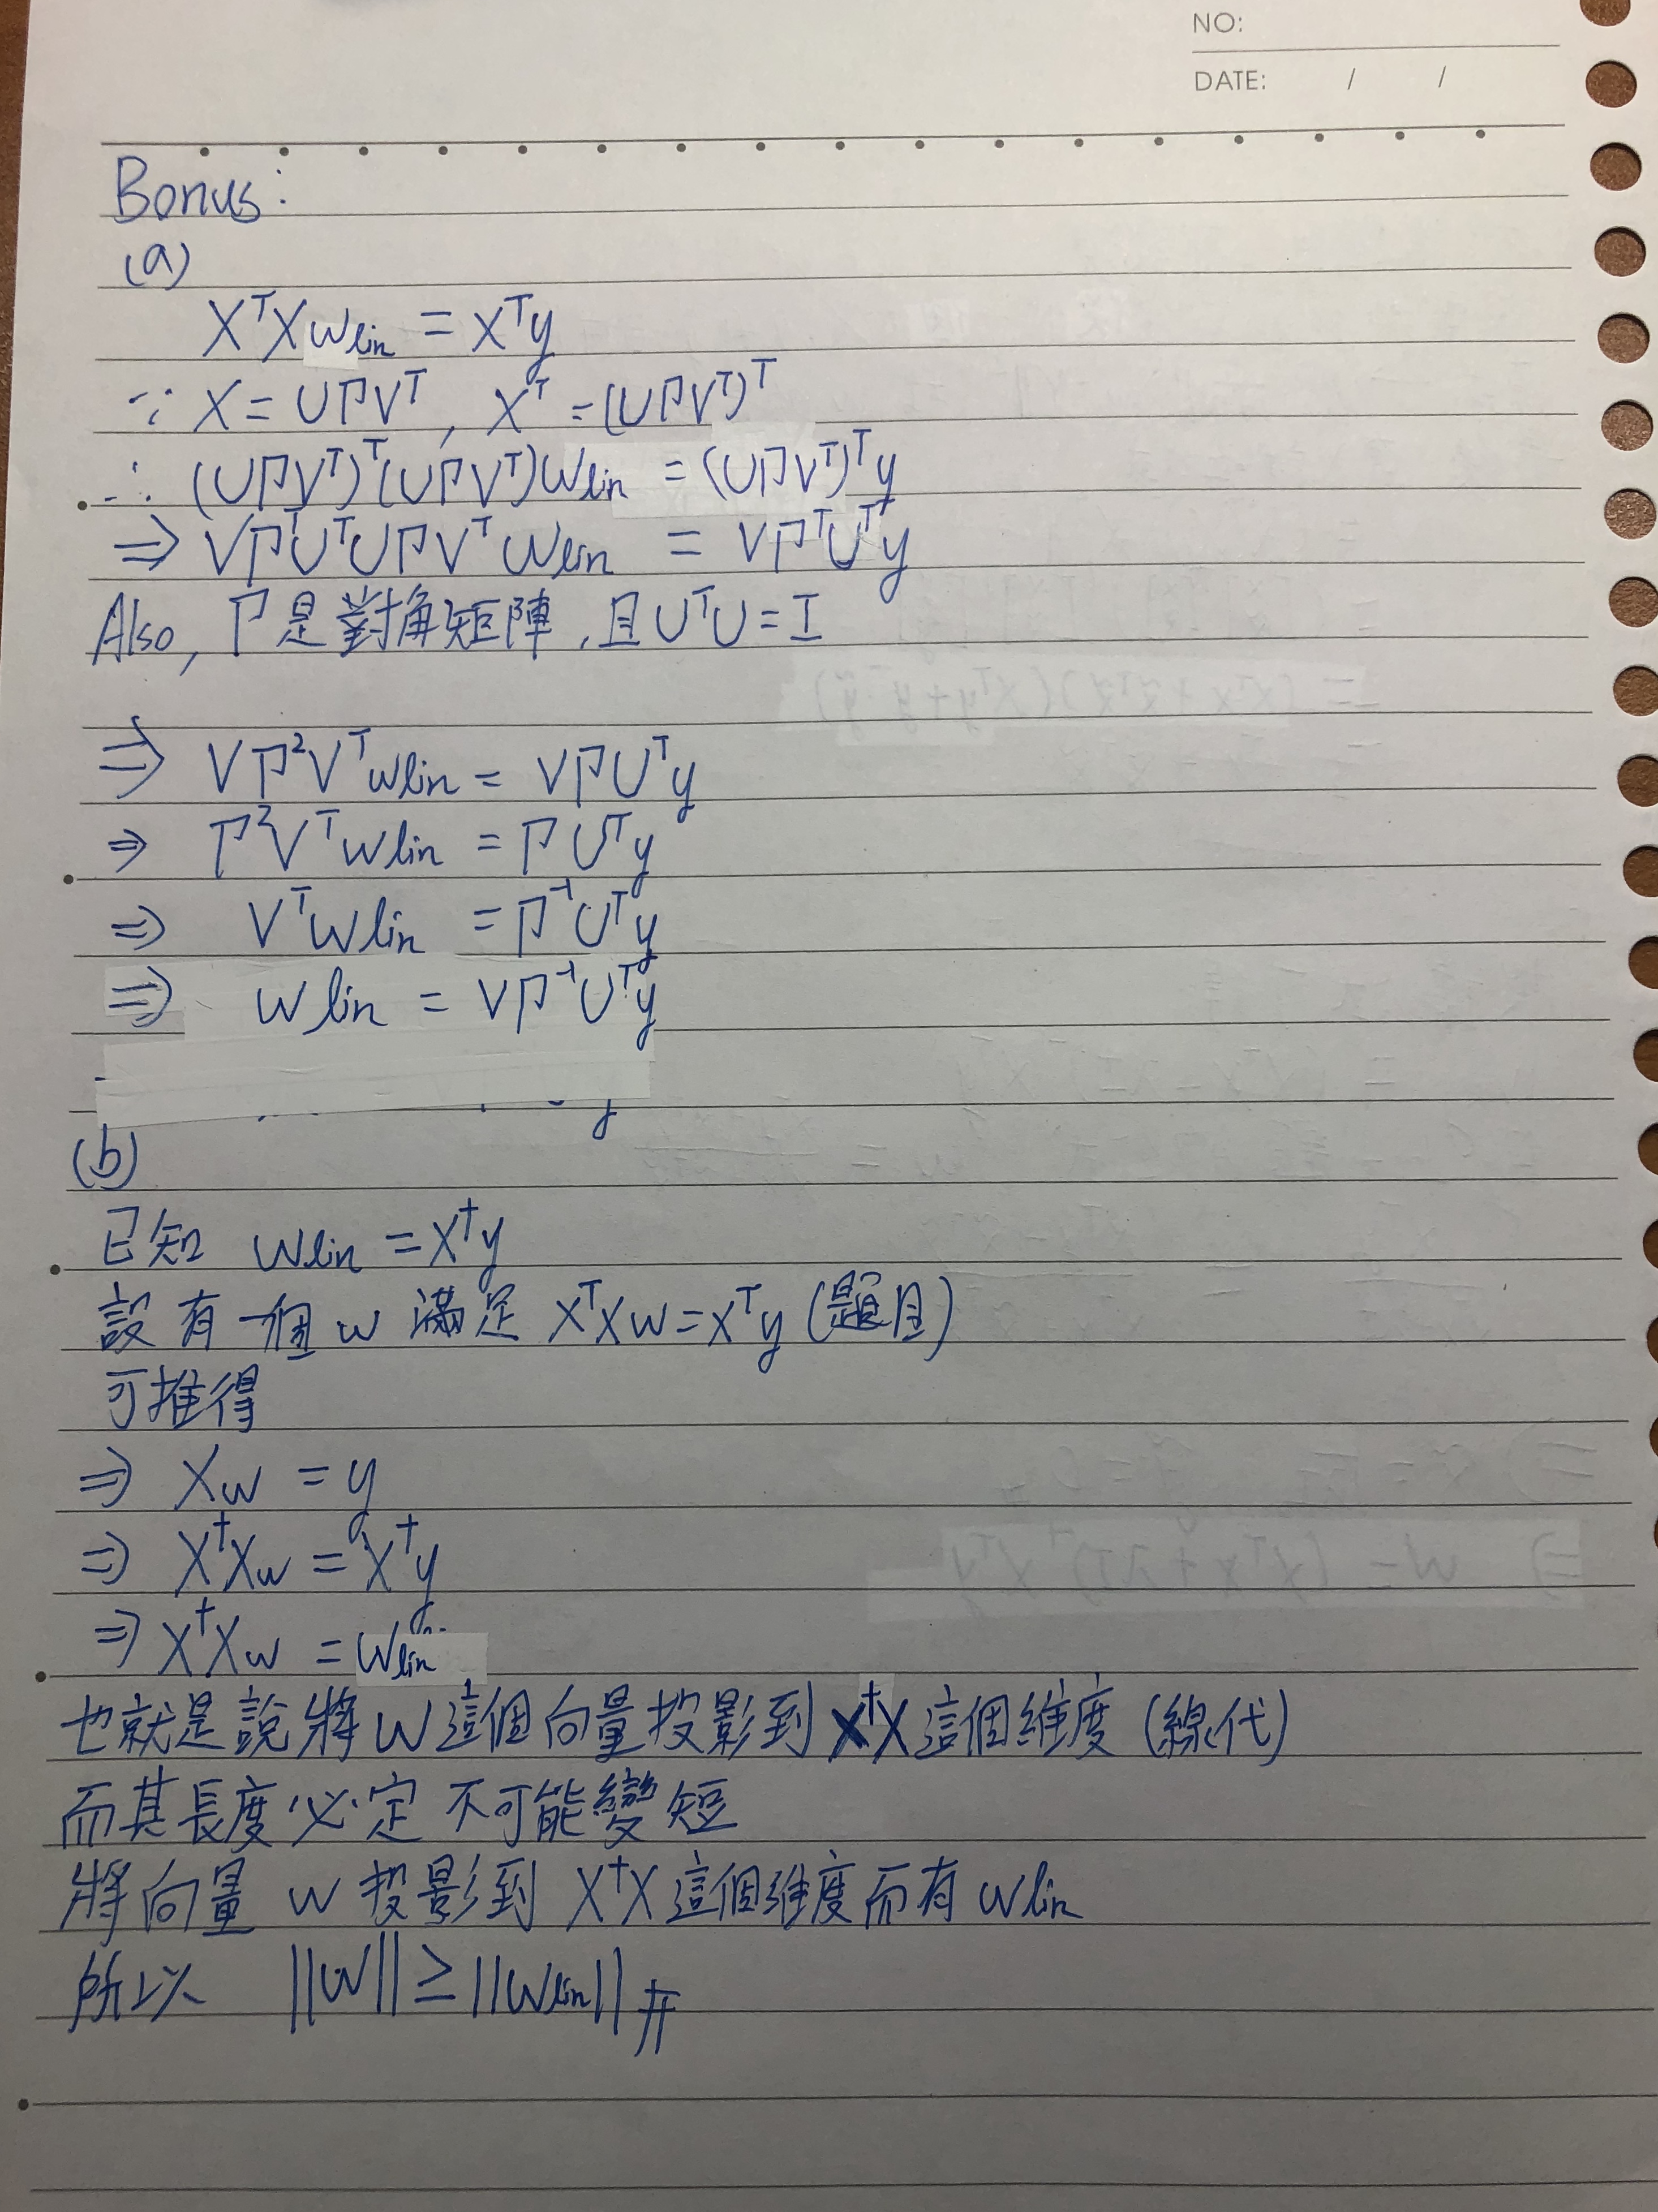 NO:
DATE: / /
Bonus:
(a)
XᵀXwlin = Xᵀy
∵ X = UΓVᵀ, Xᵀ = (UΓVᵀ)ᵀ
∴ (UΓVᵀ)ᵀ(UΓVᵀ)wlin = (UΓVᵀ)ᵀy
⇒ VΓᵀUᵀUΓVᵀwlin = VΓᵀUᵀy
Also, Γ是對角矩陣,且UᵀU=I
⇒ VΓ²Vᵀwlin = VΓUᵀy
⇒ Γ²Vᵀwlin = ΓUᵀy
⇒ Vᵀwlin = Γ⁻¹Uᵀy
⇒ wlin = VΓ⁻¹Uᵀy
(b)
已知 wlin = X†y
設有一個w滿足 XᵀXw=Xᵀy (題目)
可推得
⇒ Xw = y
⇒ X†Xw = X†y
⇒ X†Xw = wlin
也就是說將w這個向量投影到X†X這個維度(線代)
而其長度必定不可能變短
將向量 w 投影到 X†X這個維度而有wlin
所以 ||w|| ≥ ||wlin|| #